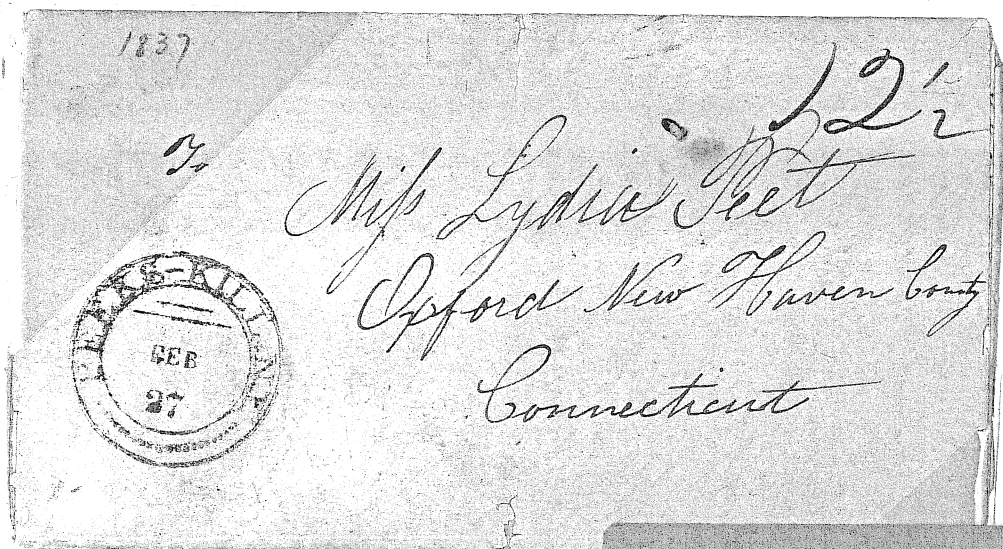 1837
12 1/2
To
Miss Lydia Peet
Oxford New Haven County
Connecticut
PEEKS-KILL N.Y.
FEB
27